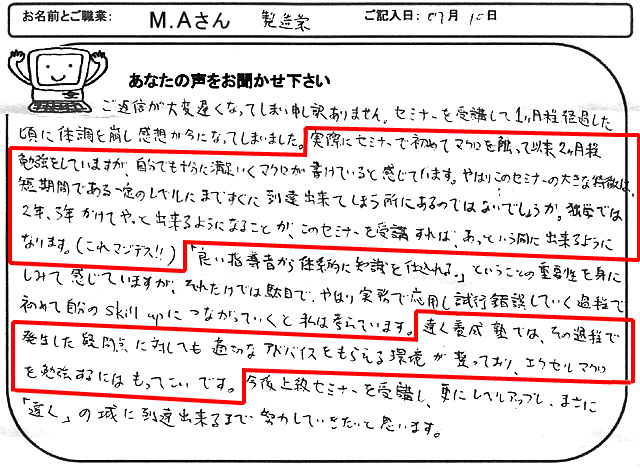 お名前とご職業: M.Aさん 製造業 ご記入日: 07月10日
あなたの声をお聞かせ下さい
ご返信が大変遅くなってしまい申し訳ありません。セミナーを受講して1ヶ月程経過した
頃に体調を崩し感想が今になってしまいました。実際にセミナーで初めてマクロを触って以来2ヶ月程
勉強をしていますが、自分でもそれなりに満足いくマクロが書けていると感じています。やはりこのセミナーの大きな特徴は、
短期間である一定のレベルにまですぐに到達出来てしまう所にあるのではないでしょうか。独学では
2年、3年かけてやっと出来るようになることが、このセミナーを受講すれば、あっという間に出来るように
なります。(これマジデス!!)「良い指導者から体系的に知識を仕入れる。」ということの重要性を身に
しみて感じていますが、それだけでは駄目で、やはり実務で応用し試行錯誤していく過程で
初めて自分のskill upにつながっていくと私は考えています。達く養成塾では、その過程で
発生した疑問点に対しても適切なアドバイスをもらえる環境が整っており、エクセルマクロ
を勉強するにはもってこいです。今後上級セミナーを受講し、更にレベルアップし、まさに
「達く」の域に到達出来るまで努力していきたいと思います。